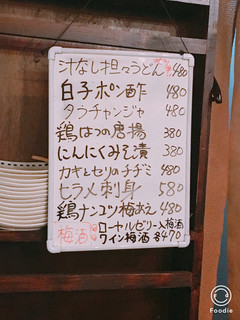 汁なし担々うどん 480
白子ポン酢 480
タラチャンジャ 480
鶏はつの唐揚 380
にんにくみそ漬 380
カキとセリのチヂミ 480
ヒラメ刺身 580
鶏ナンコツ梅あえ 480
梅酒 ローヤルゼリー入梅酒
ワイン梅酒 各470
Foodie